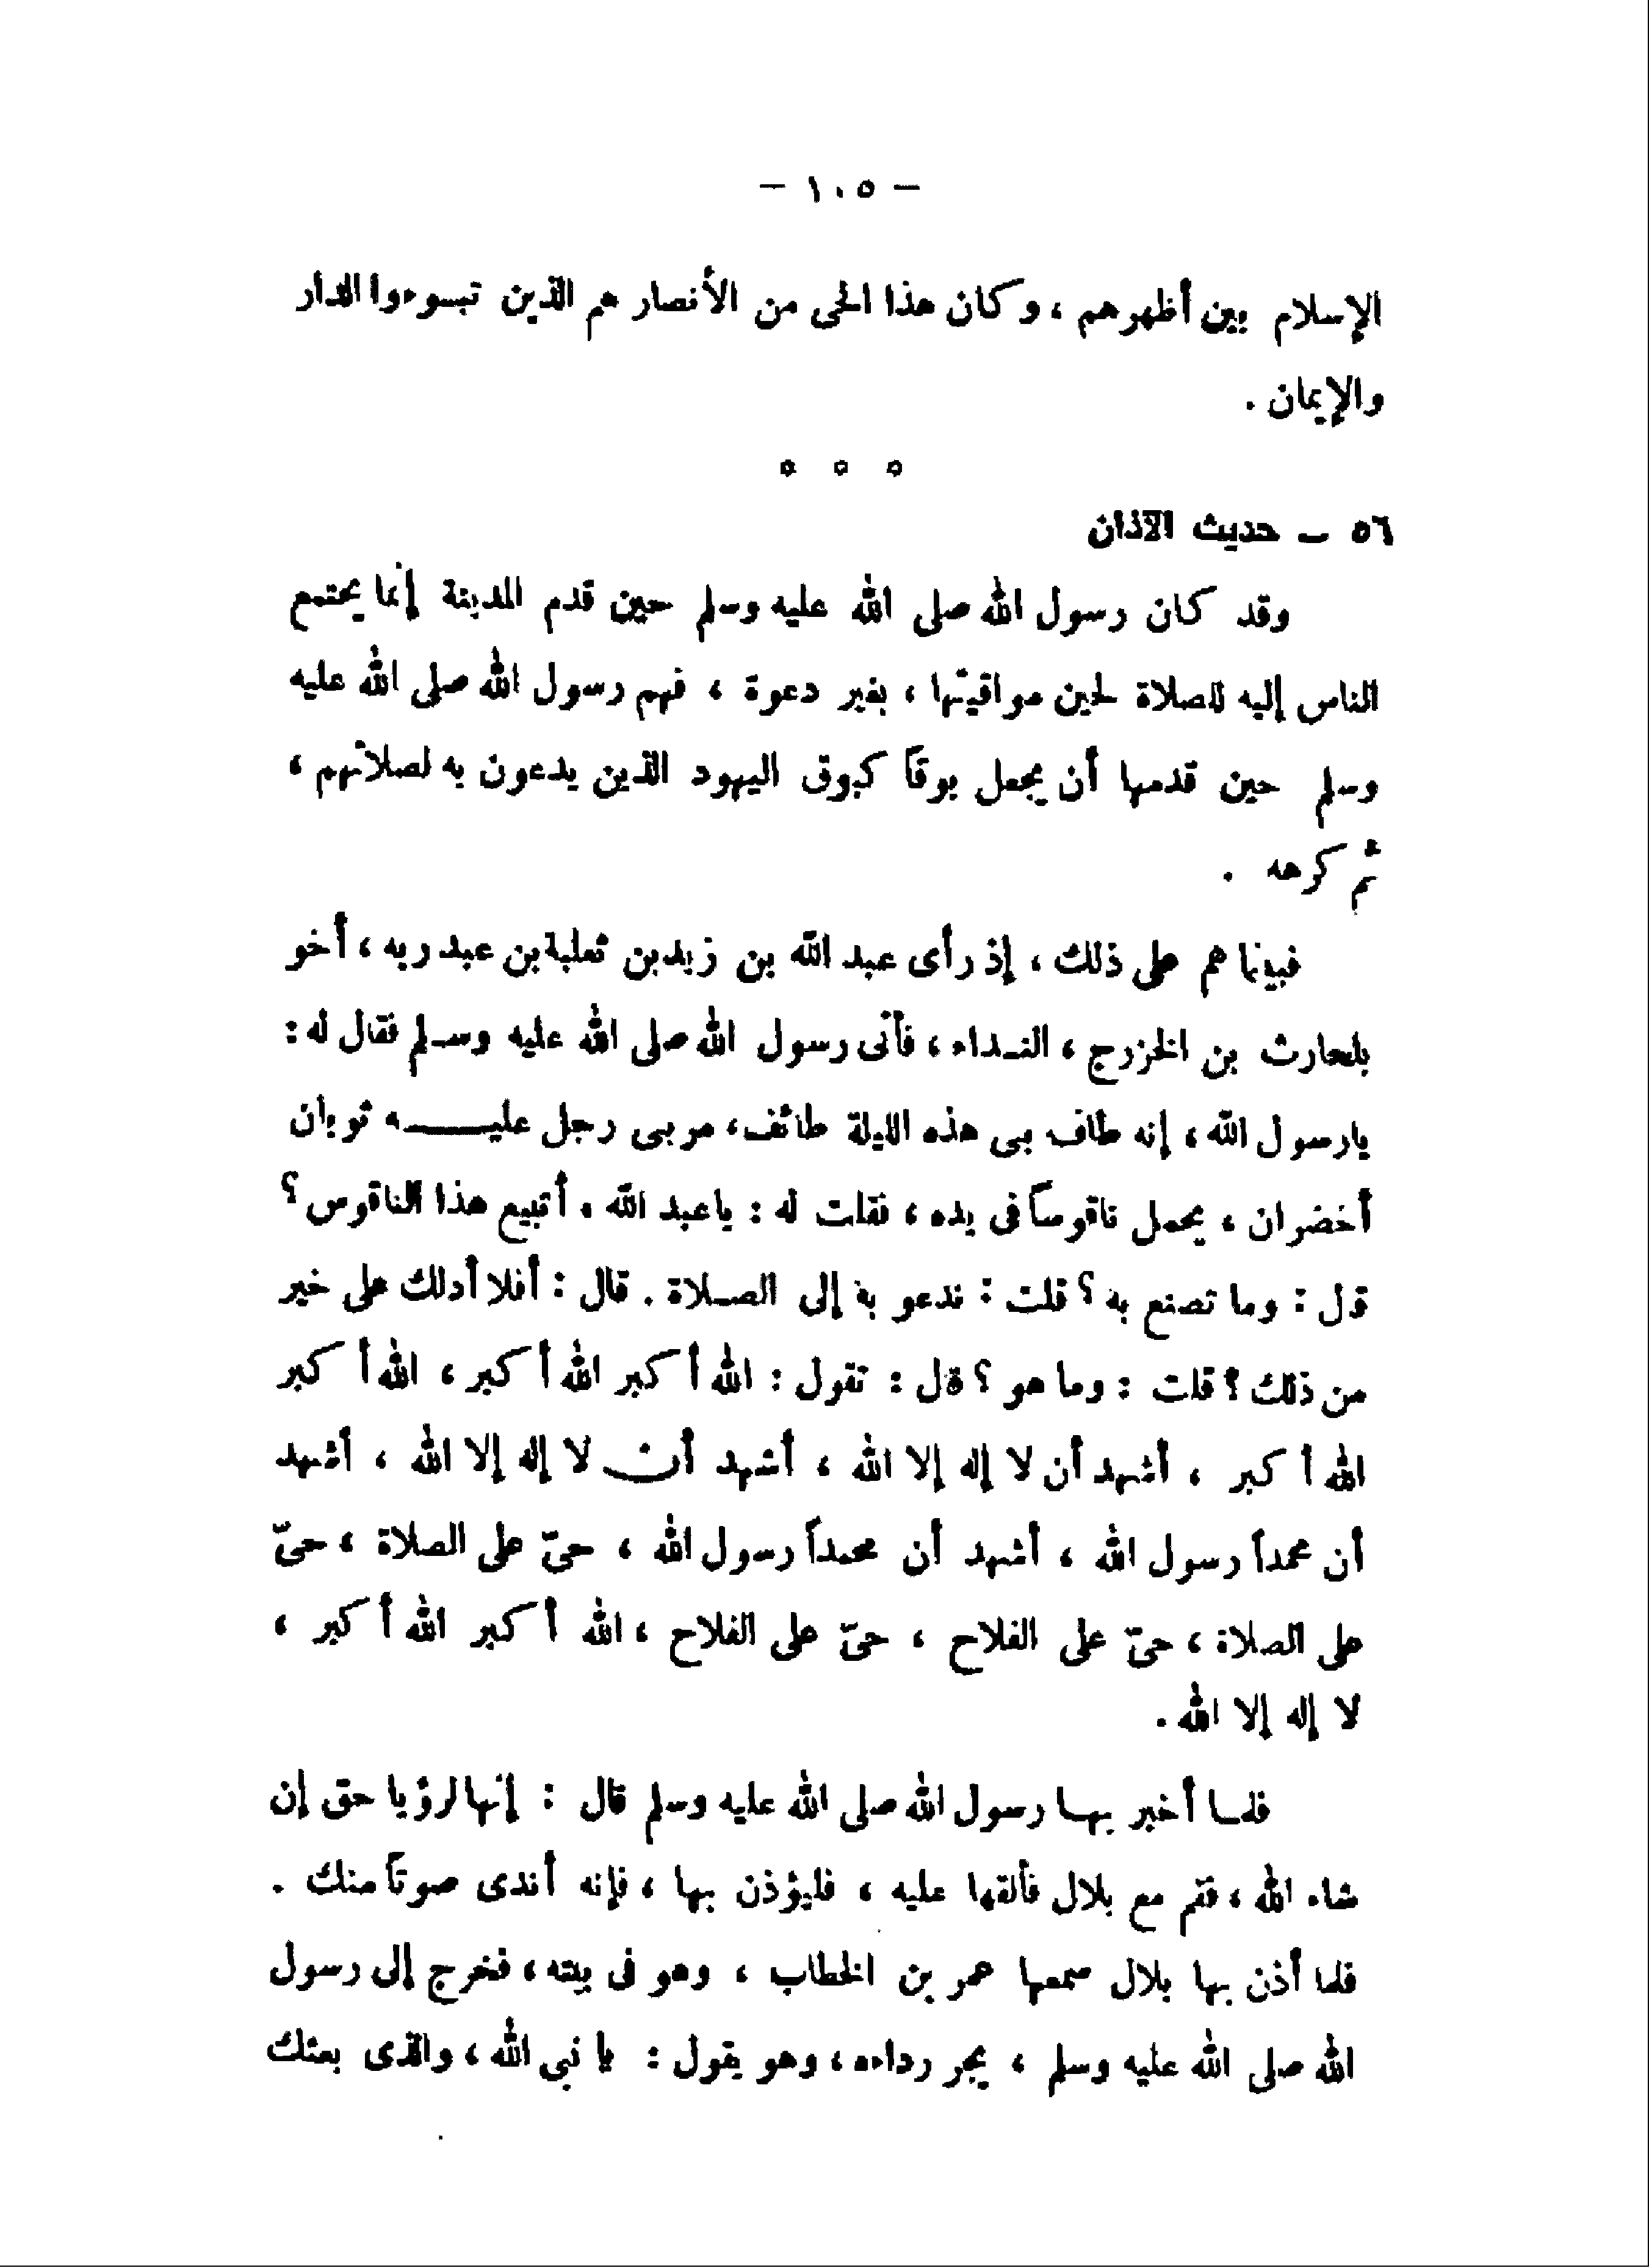 — ١٠٥ —
الإسلام بين أظهرهم ، وكان هذا الحى من الأنصار هم الذين تبوءوا الدار
والإيمان .
* * *
٥٦ – حديث الآذان
وقد كان رسول الله صلى الله عليه وسلم حين قدم المدينة إنما يجتمع
الناس إليه للصلاة لحين مواقيتها ، بغير دعوة ، فهم رسول الله صلى الله عليه
وسلم حين قدمها أن يجعل بوقاً كبوق اليهود الذين يدعون به لصلاتهم ،
ثم كرهه .
فبينما هم على ذلك ، إذ رأى عبد الله بن زيد بن ثعلبة بن عبد ربه ، أخو
بلحارث بن الخزرج ، النداء ، فأتى رسول الله صلى الله عليه وسلم فقال له :
يارسول الله ، إنه طاف بى هذه الليلة طائف ، مر بى رجل عليه ثوبان
أخضران ، يحمل ناقوساً فى يده ، فقلت له : ياعبد الله . أتبيع هذا الناقوس ؟
قال : وما تصنع به ؟ قلت : ندعو به إلى الصلاة . قال : أفلا أدلك على خير
من ذلك ؟ قلت : وما هو ؟ قال : تقول : الله أكبر الله أكبر ، الله أكبر
الله أكبر ، أشهد أن لا إله إلا الله ، أشهد أن لا إله إلا الله ، أشهد
أن محمداً رسول الله ، أشهد أن محمداً رسول الله ، حىّ على الصلاة ، حىّ
على الصلاة ، حىّ على الفلاح ، حىّ على الفلاح ، الله أكبر الله أكبر ،
لا إله إلا الله .
فلما أخبر بها رسول الله صلى الله عليه وسلم قال : إنها لرؤيا حق إن
شاء الله ، فقم مع بلال فألقها عليه ، فليؤذن بها ، فإنه أندى صوتاً منك .
فلما أذن بها بلال سمعها عمر بن الخطاب ، وهو فى بيته ، فخرج إلى رسول
الله صلى الله عليه وسلم ، يجر رداءه ، وهو يقول : يا نبى الله ، والذى بعثك